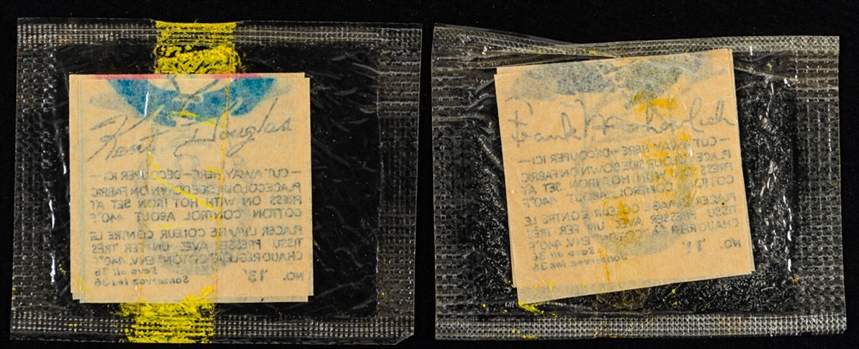 Kent Douglas
— CUT AWAY HERE — DECOUPER ICI —
PLACE COLOUR SIDE DOWN ON FABRIC
PRESS ON WITH HOT IRON SET AT
COTTON CONTROL ABOUT 440°F
PLACER L'IMAGE COLEUR CONTRE LE
TISSU PRESSER AVEC UN FER TRES
CHAUD REGULE "COTON" ENV. 440°F
Save all 36
NO. 
Conservez les 36
Frank Mahovlich
— CUT AWAY HERE — DECOUPER ICI —
PLACE COLOUR SIDE DOWN ON FABRIC
PRESS ON WITH HOT IRON SET AT
COTTON CONTROL ABOUT 440°F
PLACER L'IMAGE COLEUR CONTRE LE
TISSU PRESSER AVEC UN FER TRES
CHAUD ENV. 440°
Save all 36
NO.
Conservez les 36